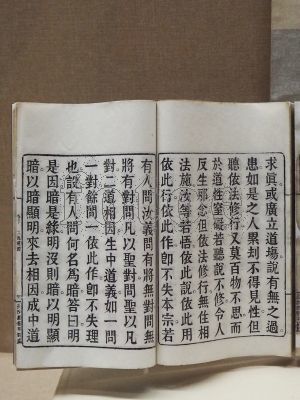 求眞或廣立道場說有無之過
患如是之人累刧不得見性但
聽依法修行又莫百物不思而
於道性窒礙若聽說不修令人
反生邪念但依法修行無住相
法施汝等若悟依此說依此用
依此行依此作卽不失本宗若
有人問汝義問有將無對問無
將有對問凡以聖對問聖以凡
對二道相因生中道義如一問
一對餘問一依此作卽不失理
也設有人問何名爲暗答曰明
是因暗是緣明沒則暗以明顯
暗以暗顯明來去相因成中道